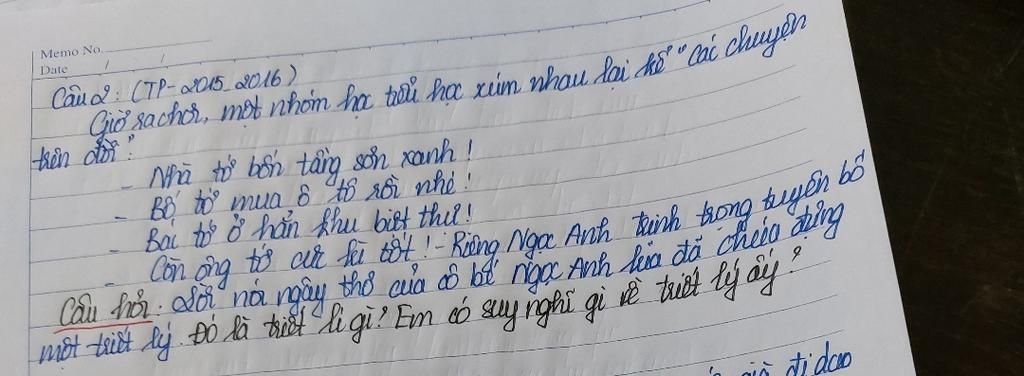 Memo No.
Date / /
Câu 2: (TP-2015_2016)
Giờ ra chơi, một nhóm học tiểu học xúm nhau lại kể "các chuyện
trên đời":
- Nhà tớ bốn tầng sơn xanh!
- Bố tớ mua ô tô rồi nhé!
- Bác tớ ở hẳn khu biệt thự!
- Còn ông tớ cực kì tốt! - Riêng Ngọc Anh trịnh trọng tuyên bố
Câu hỏi: Lời nói ngây thơ của cô bé Ngọc Anh kia đã chứa đựng
một triết lý. Đó là triết lí gì? Em có suy nghĩ gì về triết lý ấy?
đi dạo